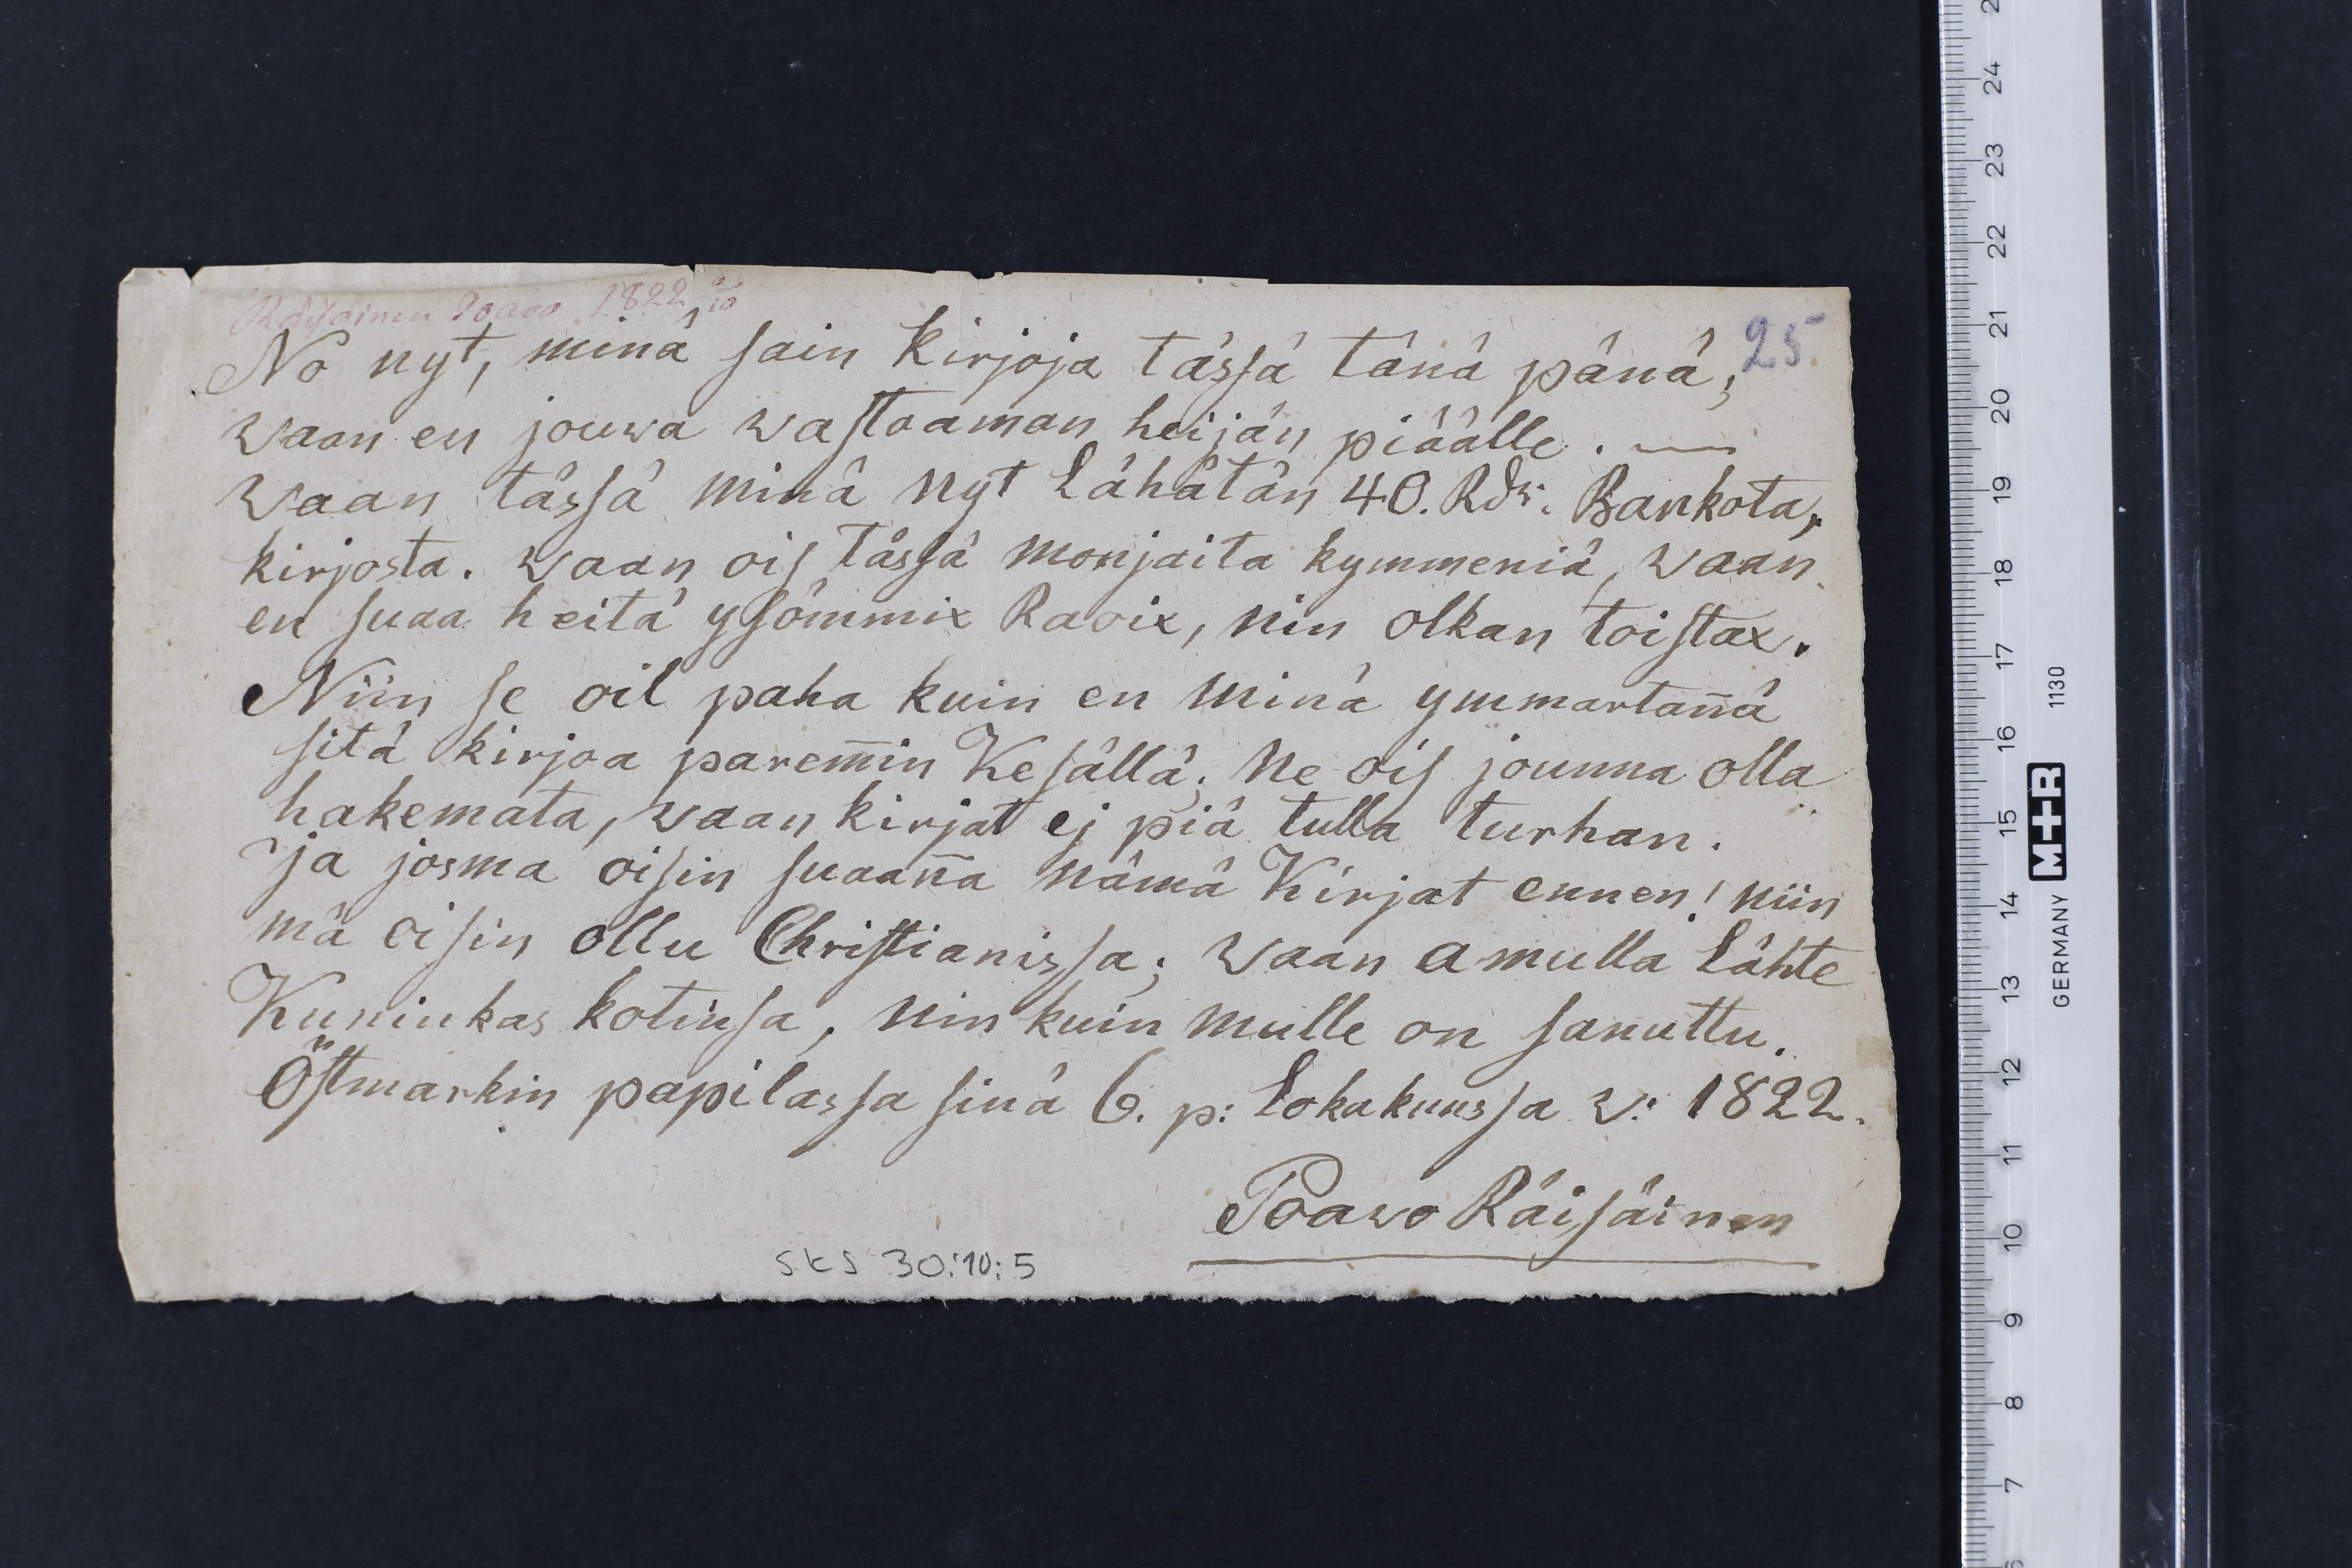 Räisäinen Poavo 1822 6/10
25
No nyt, minä sain kirjoja tässä tänä pänä;
waan en jouwa wastoaman heijän piäälle. —
waan tässä minä nyt Lähätän 40. Rdr. Bankota,
kirjosta. waan ois tässä monjaita kymmeniä, waan
en suaa heitä ysömmix Raoix, nin olkan toistax.
Niin se oil paha kuin en minä ymmartañä
sitä kirjoa parem̄in Kesällä; Ne ois jounna olla
hakemata, waan kirjat ej piä tulla turhan.
ja josma oisin suaañа nämä Kirjat ennen! niin
mä oisin ollu Christianissa; waan amulla Lähte
Kuninkas kotinsa, nin kuin mulle on sanuttu.
Östmarkin papilassa sinä 6. p: Lokakuussa v: 1822.
Poawo Räisäinen
SKS 30:10:5
24
23
22
21
20
19
18
17
16
15
14
13
12
11
10
9
8
7
1130
M+R
GERMANY